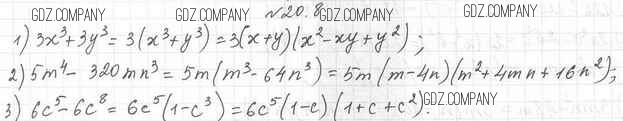 GDZ.COMPANY GDZ.COMPANY №20.8 GDZ.COMPANY GDZ.COMPANY
1) 3x³+3y³=3(x³+y³)=3(x+y)(x²-xy+y²);
2) 5m⁴-320mn³=5m(m³-64n³)=5m(m-4n)(m²+4mn+16n²);
3) 6c⁵-6c⁸=6c⁵(1-c³)=6c⁵(1-c)(1+c+c²).
GDZ.COMPANY